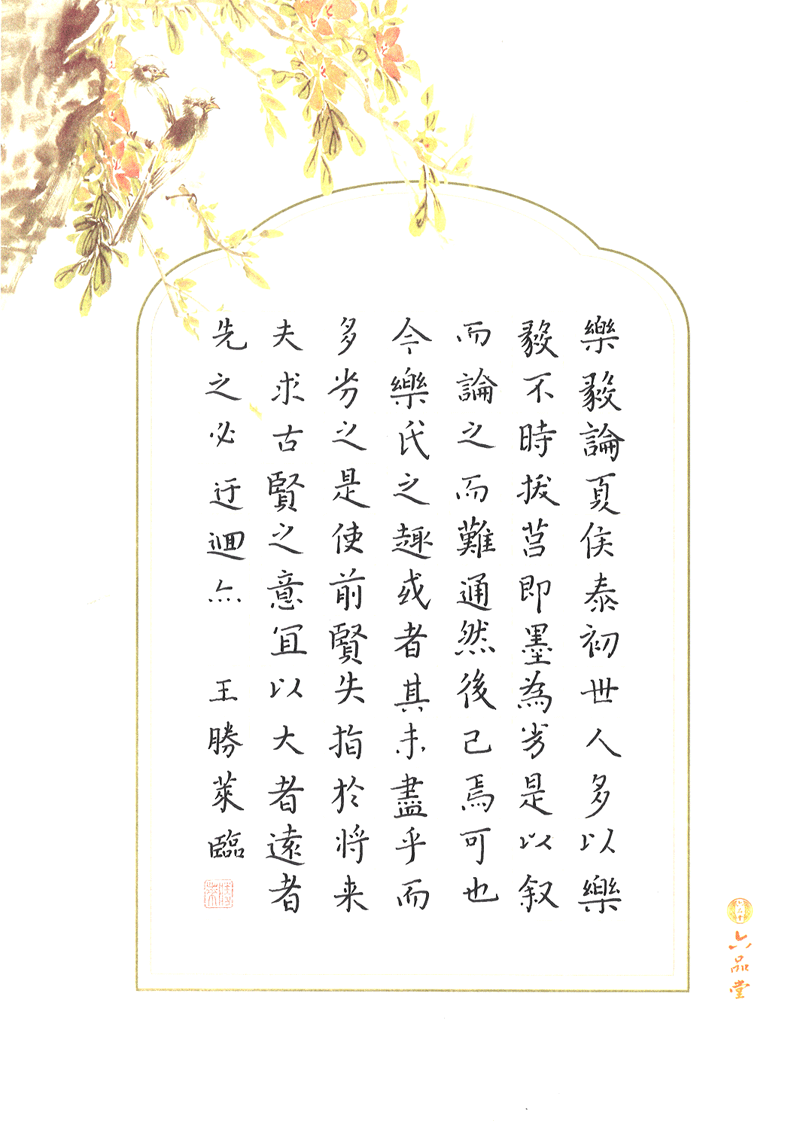 樂毅論夏侯泰初世人多以樂
毅不時拔莒即墨為劣是以叙
而論之而難通然後已焉可也
今樂氏之趣或者其未盡乎而
多劣之是使前賢失指於将来
夫求古賢之意宜以大者遠者
先之必迂迴 王勝萊臨
六品堂